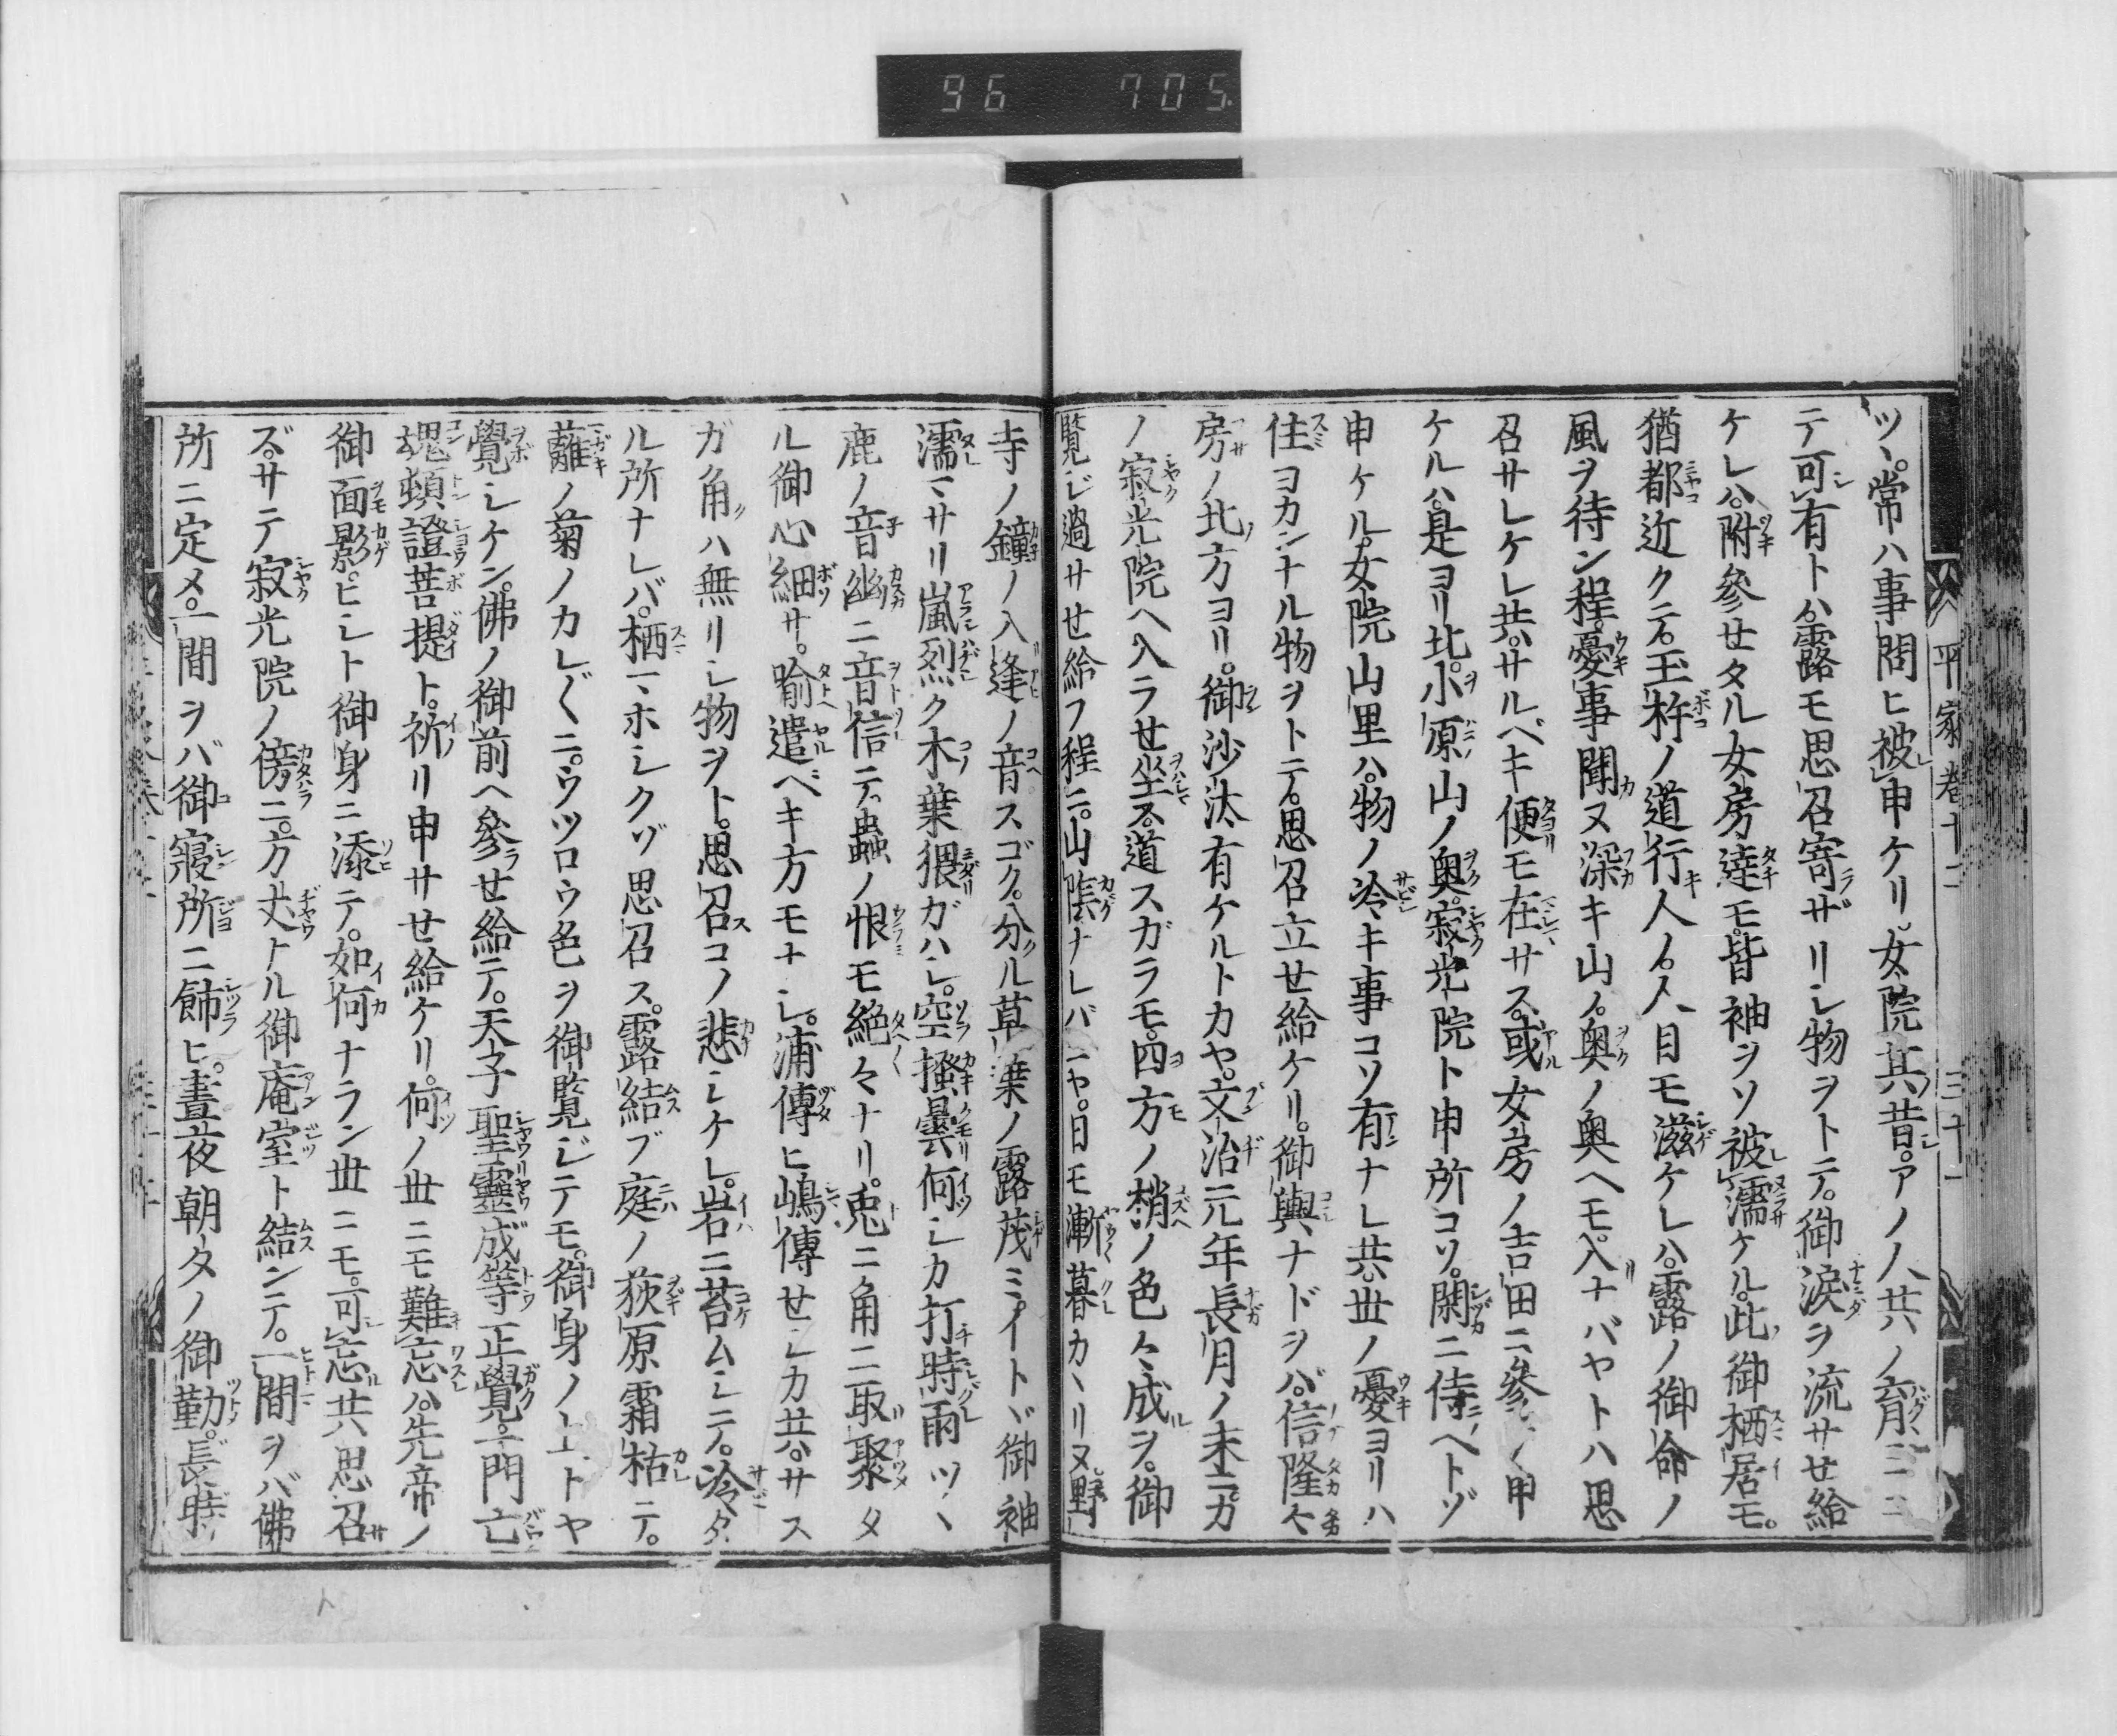 96 705
平家巻十二 三十一
ツヽ常ハ事問ヒ被申ケリ。女院其昔。アノ人共ノ育ミニ
テ可有トハ。露モ思召寄ザリシ物ヲトテ。御涙ヲ流サセ給
ケレハ。附參セタル女房達モ。皆袖ヲソ被濡ケル。此御栖居モ。
猶都近クテ。玉桙ノ道行人ノ。人目モ滋ケレハ。露ノ御命ノ
風ヲ待ン程。憂事聞ヌ深キ山ノ。奥ノ奥ヘモ。入ナバヤトハ思
召サレケレ共。サルベキ便モ在サス。或女房ノ吉田ニ參 申
ケルハ。是ヨリ北。小原山ノ奥。寂光院ト申所コソ。閑ニ侍ヘトゾ
申ケル。女院山里ハ。物ノ冷キ事コソ有ナレ共。世ノ憂ヨリハ
住ヨカンナル物ヲトテ。思召立セ給ケリ。御輿ナドヲバ。信隆
房ノ北方ヨリ。御沙汰有ケルトカヤ。文治元年長月ノ末ニ。カ
ノ寂光院ヘ入ラセ坐ス。道スガラモ。四方ノ梢ノ色々成ヲ。御
覧ジ過サセ給フ程ニ。山陰ナレバニヤ。日モ漸暮カヽリヌ。野
寺ノ鐘ノ入逢ノ音スゴク。分ル草葉ノ露茂ミ。イトヾ御袖
濡マサリ。嵐烈ク木葉猥ガハシ。空搔曇何シカ打時雨ツヽ
鹿ノ音幽ニ音信テ。蟲ノ恨モ絶々ナリ。兎ニ角ニ取聚タ
ル御心細サ。喩遣ベキ方モナシ。浦傳ヒ嶋傳セシカ共。サス
ガ角ハ無リシ物ヲト。思召コノ悲シケレ。岩ニ苔ムシテ。冷タ
ル所ナレバ。栖マホシクゾ思召ス。露結ブ庭ノ荻原霜枯テ。
籬ノ菊ノカレ〴〵ニ。ウツロウ色ヲ御覧ジテモ。御身ノ上トヤ
覺シケン。佛ノ御前ヘ參セ給テ。天子聖靈成等正覺。一門亡
魂頓證菩提ト。祈リ申サセ給ケリ。何ノ世ニモ難忘ハ。先帝ノ
御面影。ヒシト御身ニ添テ。如何ナラン世ニモ。可忘共思召
ズ。サテ寂光院ノ傍ニ。方丈ナル御庵室ト結ンテ。一間ヲバ佛
所ニ定メ。一間ヲバ御寢所ニ飾ヒ。晝夜朝夕ノ御勤。長時